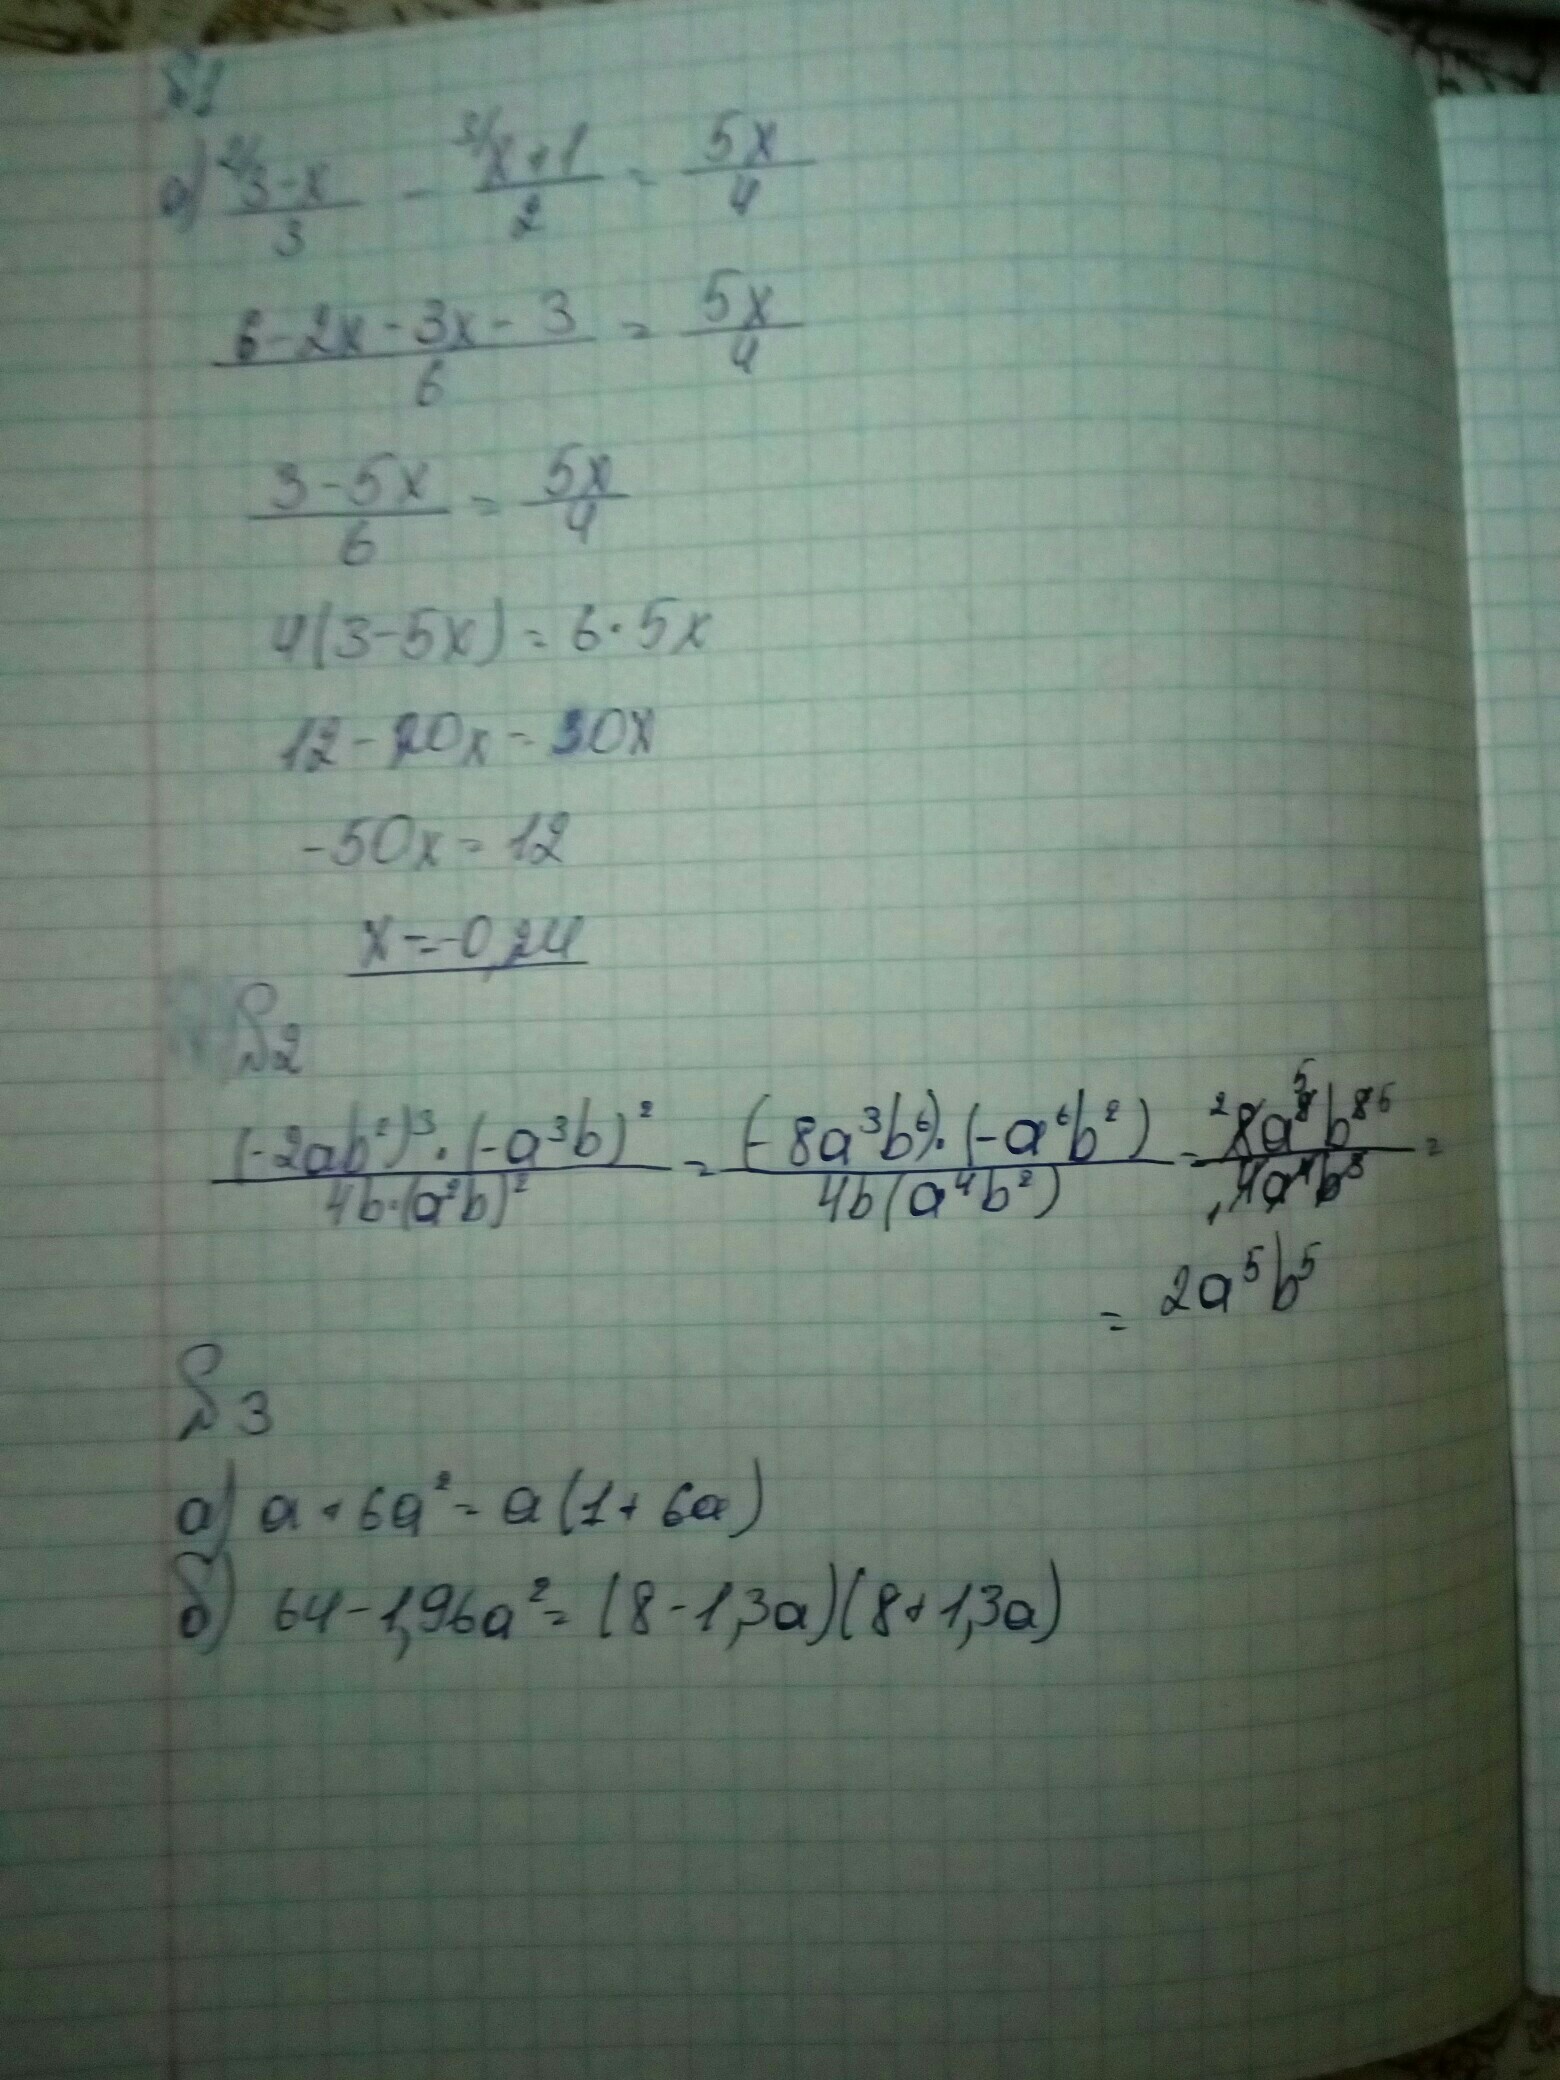 №1
а) ²⁄3-x/3 - ³⁄x+1/2 = 5x/4
6-2x-3x-3/6 = 5x/4
3-5x/6 = 5x/4
4(3-5x) = 6·5x
12-20x = 30x
-50x = 12
x = -0,24
№2
(-2ab²)³·(-a³b)²/4b·(a²b)² = (-8a³b⁶)·(-a⁶b²)/4b(a⁴b²) = 8a b⁸/4a⁴b³ =
= 2a⁵b⁵
№3
а) a+6a² = a(1+6a)
б) 64-1,96a² = (8-1,3a)(8+1,3a)